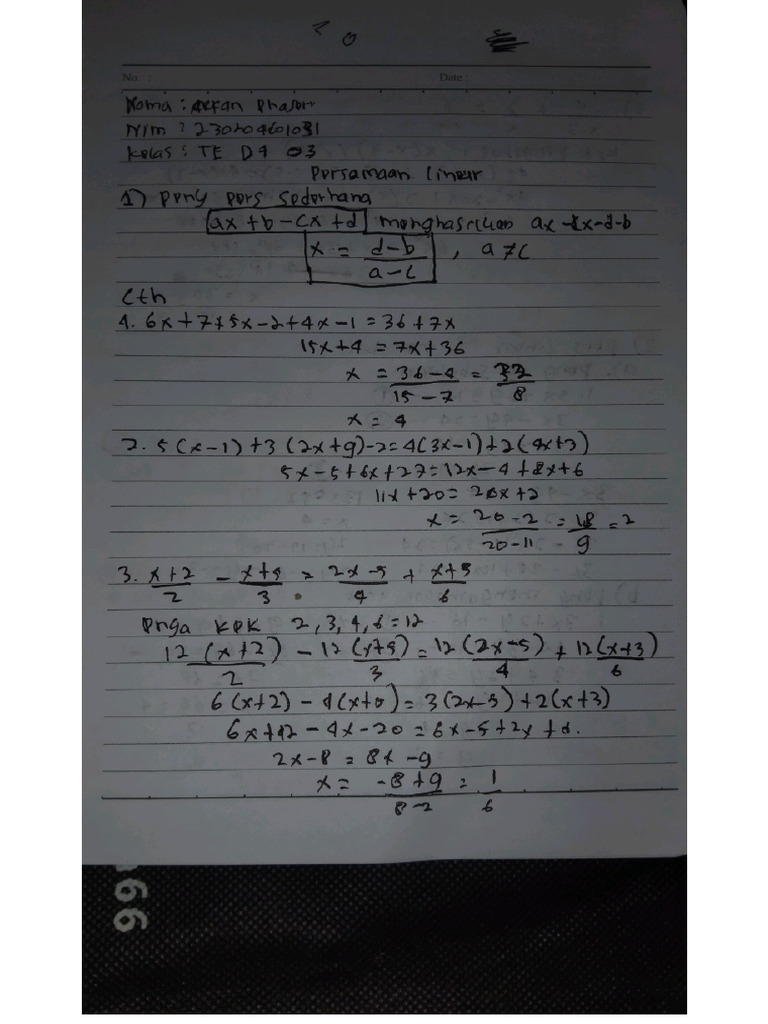 No. :
Date :
Nama :
Nim : 230204601031
Kelas : TE D4 03
Persamaan linear
1) Peny pers sederhana
ax + b - cx + d menghasilkan ax - cx - d - b
x = d-b / a-c , a ≠ c
Cth
1. 6x + 7 + 5x - 2 + 4x - 1 = 36 + 7x
15x + 4 = 7x + 36
x = 36 - 4 / 15 - 7 = 32 / 8
x = 4
2. 5 (x - 1) + 3 (2x + 9) - 2 = 4(3x - 1) + 2(4x + 3)
5x - 5 + 6x + 27 = 12x - 4 + 8x + 6
11x + 20 = 20x + 2
x = 20 - 2 / 20 - 11 = 18 / 9 = 2
3. x + 2 / 2 - x + 5 / 3 = 2x - 5 / 4 + x + 3 / 6
KPK 2, 3, 4, 6 = 12
12 (x + 2) / 2 - 12 (x + 5) / 3 = 12 (2x - 5) / 4 + 12 (x + 3) / 6
6 (x + 2) - 4 (x + ) = 3 (2x - 5) + 2 (x + 3)
6x + 12 - 4x - 20 = 6x - 5 + 2x + 6.
2x - 8 = 8x - 9
x = -8 + 9 / 8 - 2 = 1 / 6
66